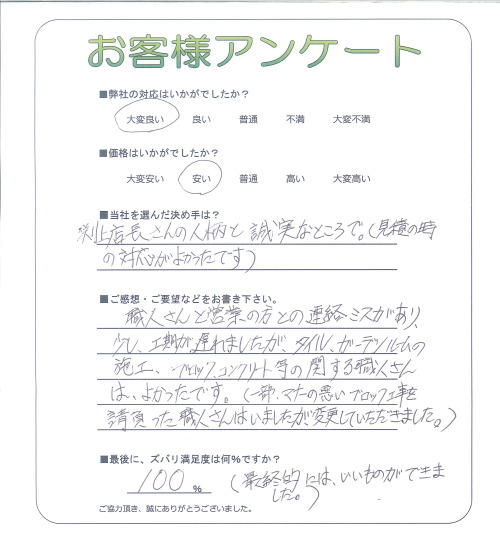 お客様アンケート
■弊社の対応はいかがでしたか?
大変良い 良い 普通 不満 大変不満
■価格はいかがでしたか?
大変安い 安い 普通 高い 大変高い
■当社を選んだ決め手は?
店長さんの人柄と誠実なところで。(見積の時
の対応がよかったです)
■ご感想・ご要望などをお書き下さい。
職人さんと営業の方との連絡ミスがあり、
少し、工期が遅れましたが、タイル、ガーデンルームの
施工、ブロック、コンクリート等の関する職人さん
は、よかったです。(一部、マナーの悪いブロック工事を
請負った職人さんはいましたが、変更していただきました。)
■最後に、ズバリ満足度は何%ですか?
100 % (最終的には、いいものができま
した。)
ご協力頂き、誠にありがとうございました。